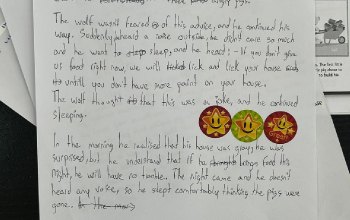 angry pigs.
The wolf wasn't feared of this advice, and he continued his
way. Suddenly heard a noise outside, he didn't care so much
and he want to sleep, and he heard: - If you don't give
us food right now we will lick and lick your house
until you don't have more paint on your house.
The wolf thought that this was a joke, and he continued
sleeping.
In the morning he realised that his house was gray, he was
surprised, but he understand that if he brings food this
night, he will have no trouble. The night came and he doesn't
heard any voice, so he slept comfortably thinking the pigs were
gone.